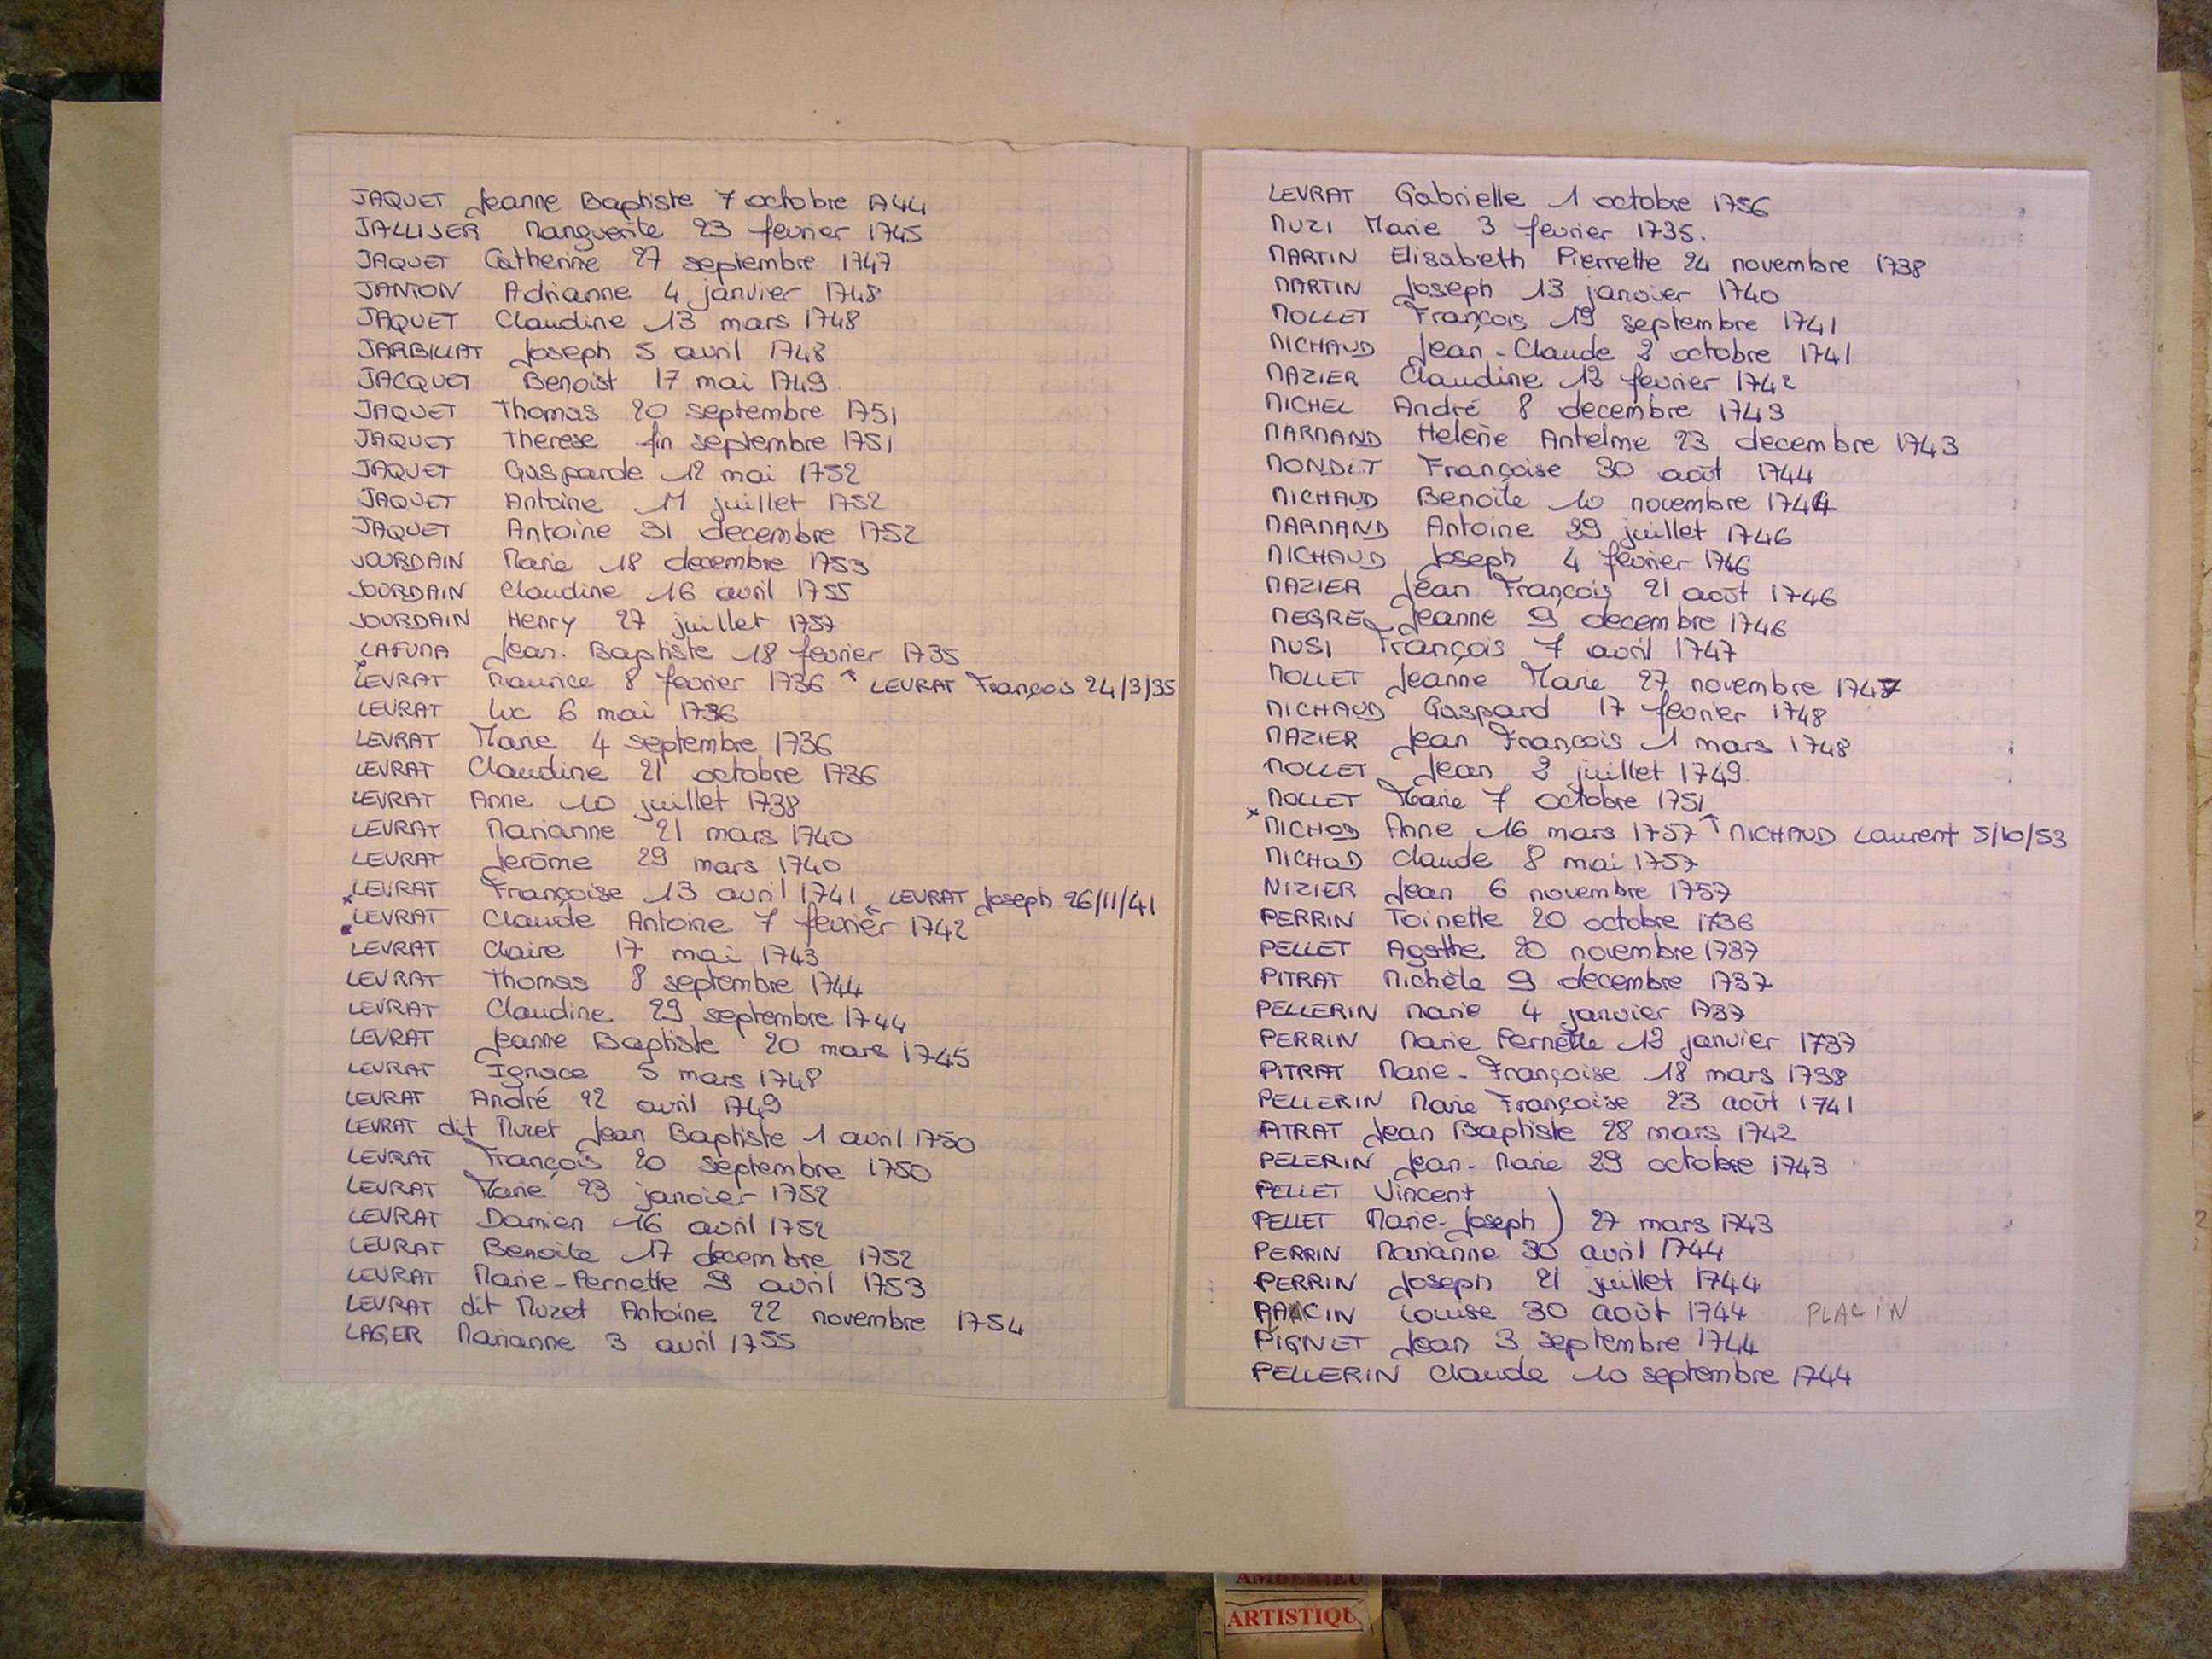 JAQUET Jeanne Baptiste 7 octobre 1744
JALLIJER Marguerite 23 fevrier 1745
JAQUET Catherine 27 septembre 1747
JANTON Adrianne 4 janvier 1748
JAQUET Claudine 13 mars 1748
JARBILLAT Joseph 5 avril 1748
JACQUET Benoist 17 mai 1749
JAQUET Thomas 20 septembre 1751
JAQUET Therese fin septembre 1751
JAQUET Gasparde 12 mai 1752
JAQUET Antoine 11 juillet 1752
JAQUET Antoine 31 decembre 1752
JOURDAIN Marie 18 decembre 1753
JOURDAIN Claudine 16 avril 1755
JOURDAIN Henry 27 juillet 1757
LAFUMA Jean. Baptiste 18 fevrier 1735
LEVRAT Maurice 8 fevrier 1736 ↑ LEVRAT François 24/3/35
LEVRAT Luc 6 mai 1736
LEVRAT Marie 4 septembre 1736
LEVRAT Claudine 21 octobre 1736
LEVRAT Anne 10 juillet 1738
LEVRAT Marianne 21 mars 1740
LEVRAT Jerôme 29 mars 1740
LEVRAT Françoise 13 avril 1741 LEVRAT Joseph 26/11/41
x LEVRAT Claude Antoine 7 fevrier 1742
LEVRAT Claire 17 mai 1743
LEVRAT Thomas 8 septembre 1744
LEVRAT Claudine 29 septembre 1744
LEVRAT Jeanne Baptiste 20 mars 1745
LEVRAT Ignace 5 mars 1748
LEVRAT André 22 avril 1749
LEVRAT dit Muzet Jean Baptiste 1 avril 1750
LEVRAT François 20 septembre 1750
LEVRAT Marie 23 janvier 1752
LEVRAT Damien 16 avril 1752
LEVRAT Benoite 17 decembre 1752
LEVRAT Marie-Pernette 9 avril 1753
LEVRAT dit Muzet Antoine 22 novembre 1754
LAGER Marianne 3 avril 1755
LEVRAT Gabrielle 1 octobre 1756
MUZI Marie 3 fevrier 1735.
MARTIN Elisabeth Pierrette 24 novembre 1738
MARTIN Joseph 13 janvier 1740
MOLLET François 19 septembre 1741
MICHAUD Jean-Claude 2 octobre 1741
MAZIER Claudine 12 fevrier 1742
MICHEL André 8 decembre 1743
MARMAND Helene Antelme 23 decembre 1743
MONDIT Françoise 30 août 1744
MICHAUD Benoîte 10 novembre 1744
MARMAND Antoine 29 juillet 1746
MICHAUD Joseph 4 fevrier 1746
MAZIER Jean François 21 août 1746
MEGRE Jeanne 9 decembre 1746
MUSI François 7 avril 1747
MOLLET Jeanne Marie 27 novembre 1747
MICHAUD Gaspard 17 fevrier 1748
MAZIER Jean François 1 mars 1748
MOLLET Jean 2 juillet 1749
MOLLET Marie 7 octobre 1751
x MICHOD Anne 16 mars 1757 ↑ MICHAUD Laurent 5/10/53
MICHOD Claude 8 mai 1757
NIZIER Jean 6 novembre 1757
PERRIN Toinette 20 octobre 1736
PELLET Agathe 20 novembre 1737
PITRAT Michèle 9 decembre 1737
PELLERIN Marie 4 janvier 1737
PERRIN Marie Pernette 12 janvier 1737
PITRAT Marie-Françoise 18 mars 1738
PELLERIN Marie Françoise 23 août 1741
PITRAT Jean Baptiste 28 mars 1742
PELERIN Jean-Marie 29 octobre 1743
PELLET Vincent
PELLET Marie-Joseph ) 27 mars 1743
PERRIN Marianne 30 avril 1744
PERRIN Joseph 21 juillet 1744
Louise 30 août 1744 PLACIN
PIGNET Jean 3 septembre 1744
PELLERIN Claude 10 septembre 1744
AMBERIEU
ARTISTIQU